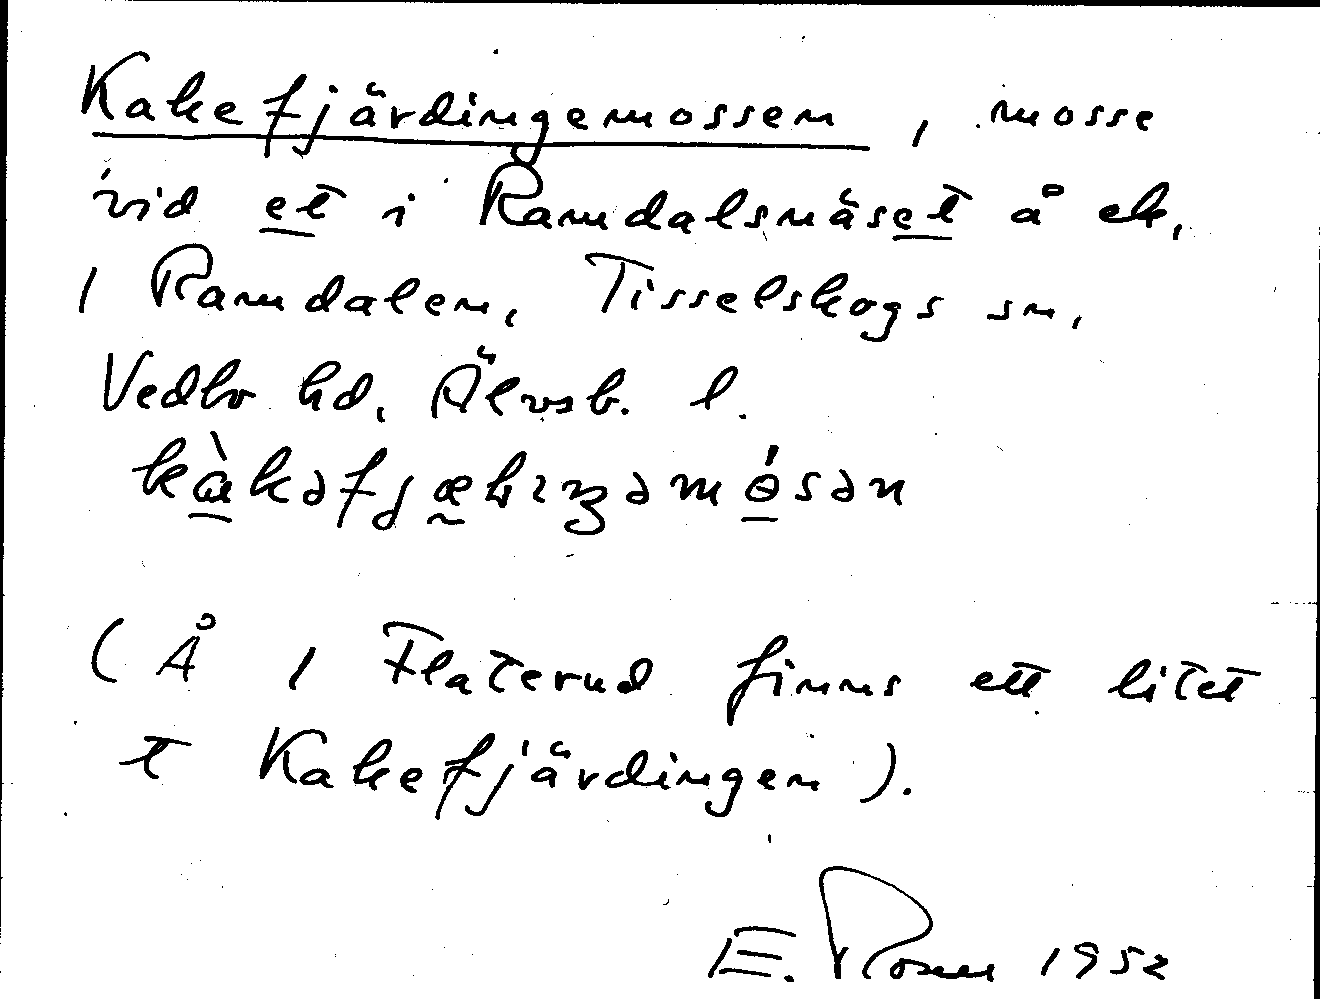 Kakefjärdingemossen, mosse
vid et i Ramdalsnäset å ek.
/ Ramdalen, Tisselskogs sn,
Vedbo hd, Älvsb. l.
(Å / Flaterud finns ett litet
t Kakefjärdingen).
E. Rosell 1952